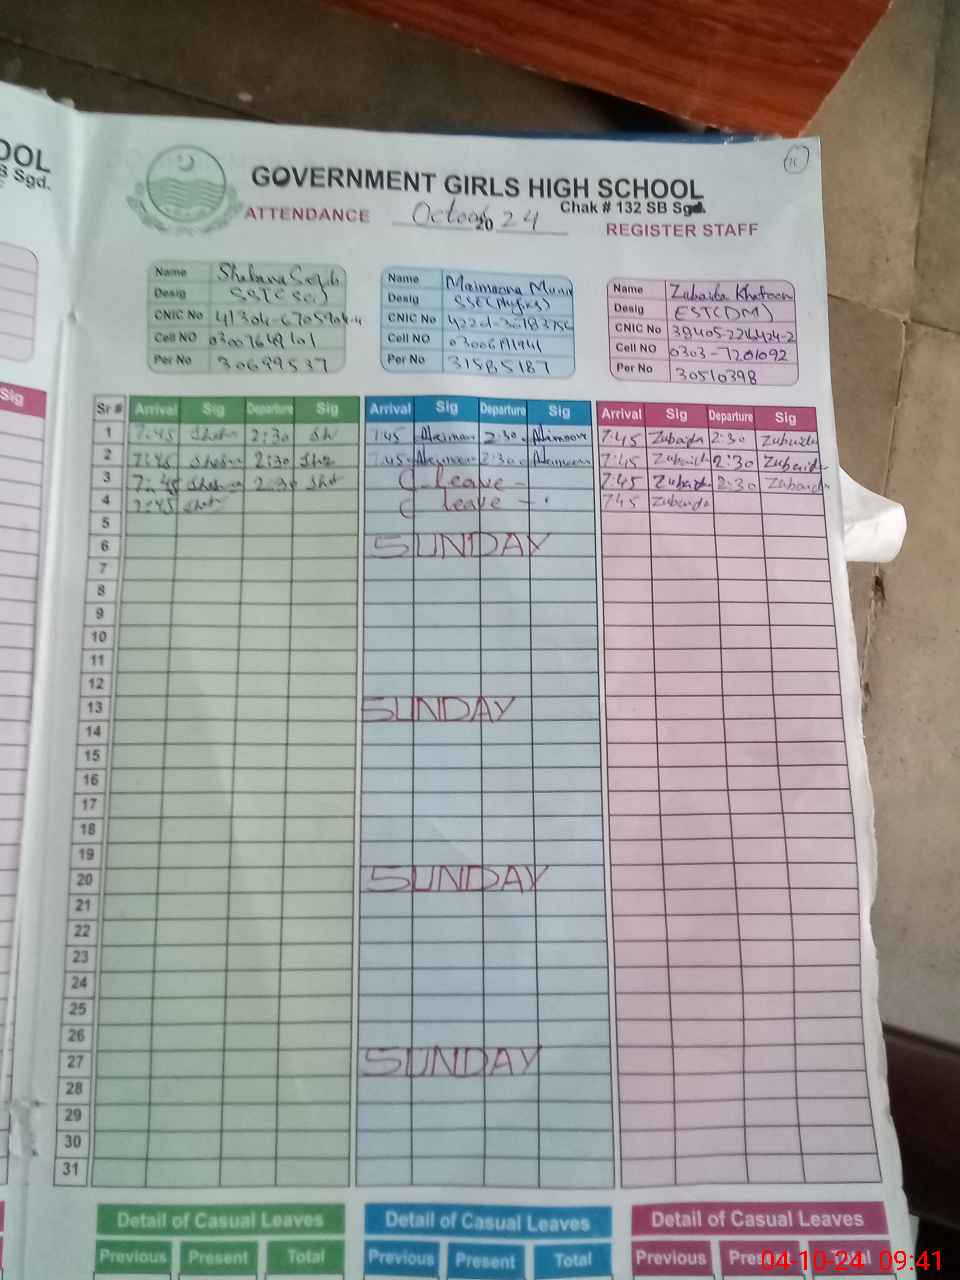 OOL
B Sgd.
Sig
GOVERNMENT GIRLS HIGH SCHOOL
Chak # 132 SB Sgd.
ATTENDANCE October 2024 REGISTER STAFF
Name Shabana
Desig SST(Sci)
CNIC No
Cell NO
Per No 30699537
Name Maimoona Munir
Desig SSE(Phy)
CNIC No
Cell NO
Per No 31585187
Name Zubaida Khatoon
Desig EST(DM)
CNIC No 38405-2264424-2
Cell NO 0303-7201092
Per No 30510398
Sr # Arrival Sig Departure Sig Arrival Sig Departure Sig Arrival Sig Departure Sig
1 7:45 2:30 7:45 2:30 7:45 Zubaida 2:30 Zubaida
2 7:45 2:30 7:45 2:30 7:45 Zubaida 2:30 Zubaida
3 7:45 2:30 C leave - 7:45 Zubaida 2:30 Zubaida
4 7:45 C leave - 7:45 Zubaida
5
6 SUNDAY
7
8
9
10
11
12
13 SUNDAY
14
15
16
17
18
19
20 SUNDAY
21
22
23
24
25
26
27 SUNDAY
28
29
30
31
Detail of Casual Leaves Detail of Casual Leaves Detail of Casual Leaves
Previous Present Total Previous Present Total Previous Present Total
04-10-24 09:41